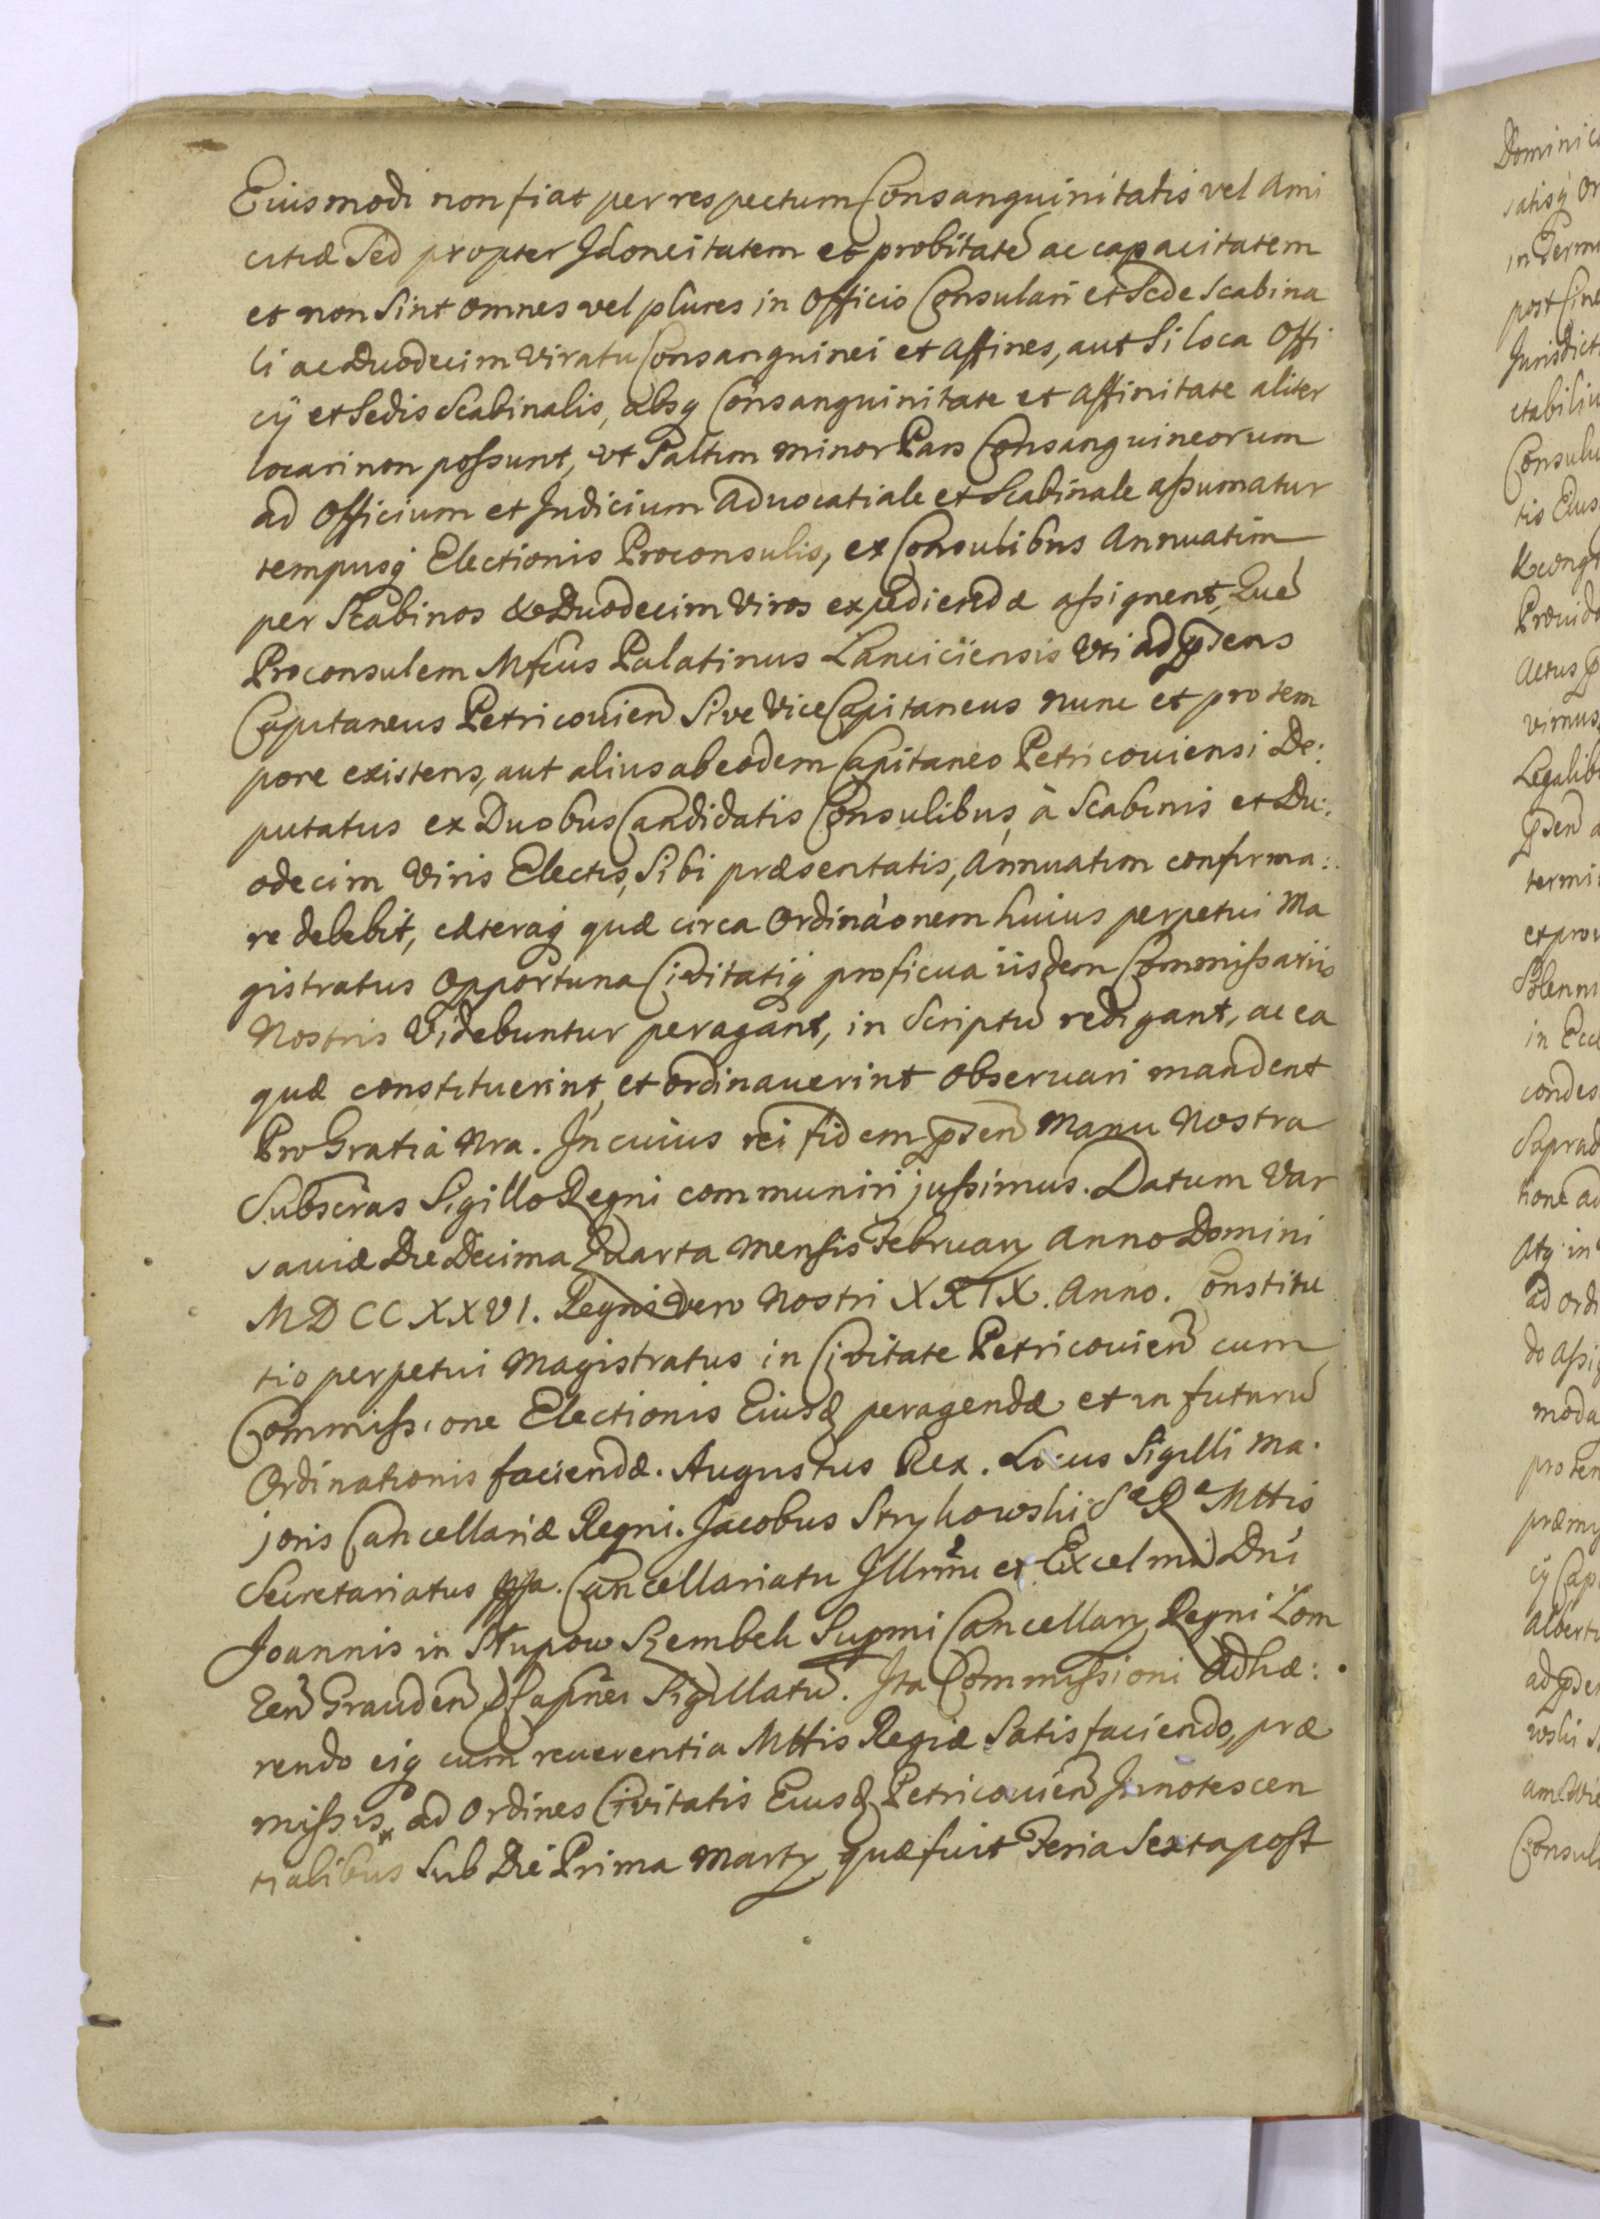 Eiusmodi non fiat per respectum Consanguinitatis vel Ami
citiæ Sed propter Idoneitatem et probitatē ac capacitatem
et non Sint omnes vel plures in Officio Consulari et Sede Scabina
li ac Duodecim Viratu Consanguinei et Affines, aut Si loca Offi
cÿ et Sedis Scabinalis, absq Consanguinitate et Affinitate aliter
locari non possunt, ut Saltim minor Pars Consanguineorum
ad Officium et Judicium Advocatiale et Scabinale assumatur
tempusq Electionis Proconsulis, ex Consulibus Annuatim
per Scabinos & Duodecim Viros expediendæ assignent, Quē
Proconsulem Mfcus Palatinus Lanciciensis Uti ad pñsens
Capitaneus Petricovieñ Sive Vice Capitaneus nunc et pro tem
pore existens, aut alius ab eodem Capitaneo Petricoviensi De:
putatus ex Duobus Candidatis Consulibus, à Scabinis et Du:
odecim Viris Electis, Sibi præsentatis, Annuatim confirma:
re debebit, cæteraq quæ circa Ordināonem huius perpetui Ma
gistratus Opportuna Civitatiq proficua iisdem Commissariis
Nostris Videbuntur peragant, in Scriptū redigant, ac ea
quæ constituerint, et ordinaverint observari mandent
Pro Gratiâ Nra. In cuius rei fidem pñseñ Manu Nostra
Subscras Sigillo Regni communiri jussimus. Datum Var
saviæ Die Decima Quarta Mensis February Anno Domini
MDCCXXVI. Regni Vero Nostri XXIX. Anno. Constitu
tio perpetui Magistratus in Civitate Petricovieñ cum
Commissione Electionis Eiusd peragendæ et in futurū
Ordinationis faciendæ. Augustus Rex. Locus Sigilli Ma.
joris Cancellariæ Regni. Jacobus Strykowski Sæ Ræ Mttis
Secretariatus Cancellariatu Illrmi et Excelmi Dñi
Joannis in Słupow Szembek Supmi Cancellary Regni Lom
Zeñ Graudeñ Capnei Sigillatū. Ita Commissioni Adhæ:
rendo eiq cum reverentia Mttis Regiæ Satisfaciendo, præ
missis ad Ordines Civitatis Eiusd Petricovieñ Innotescen
tialibus Sub Die Prima Marty quæ fuit Feria Sexta post